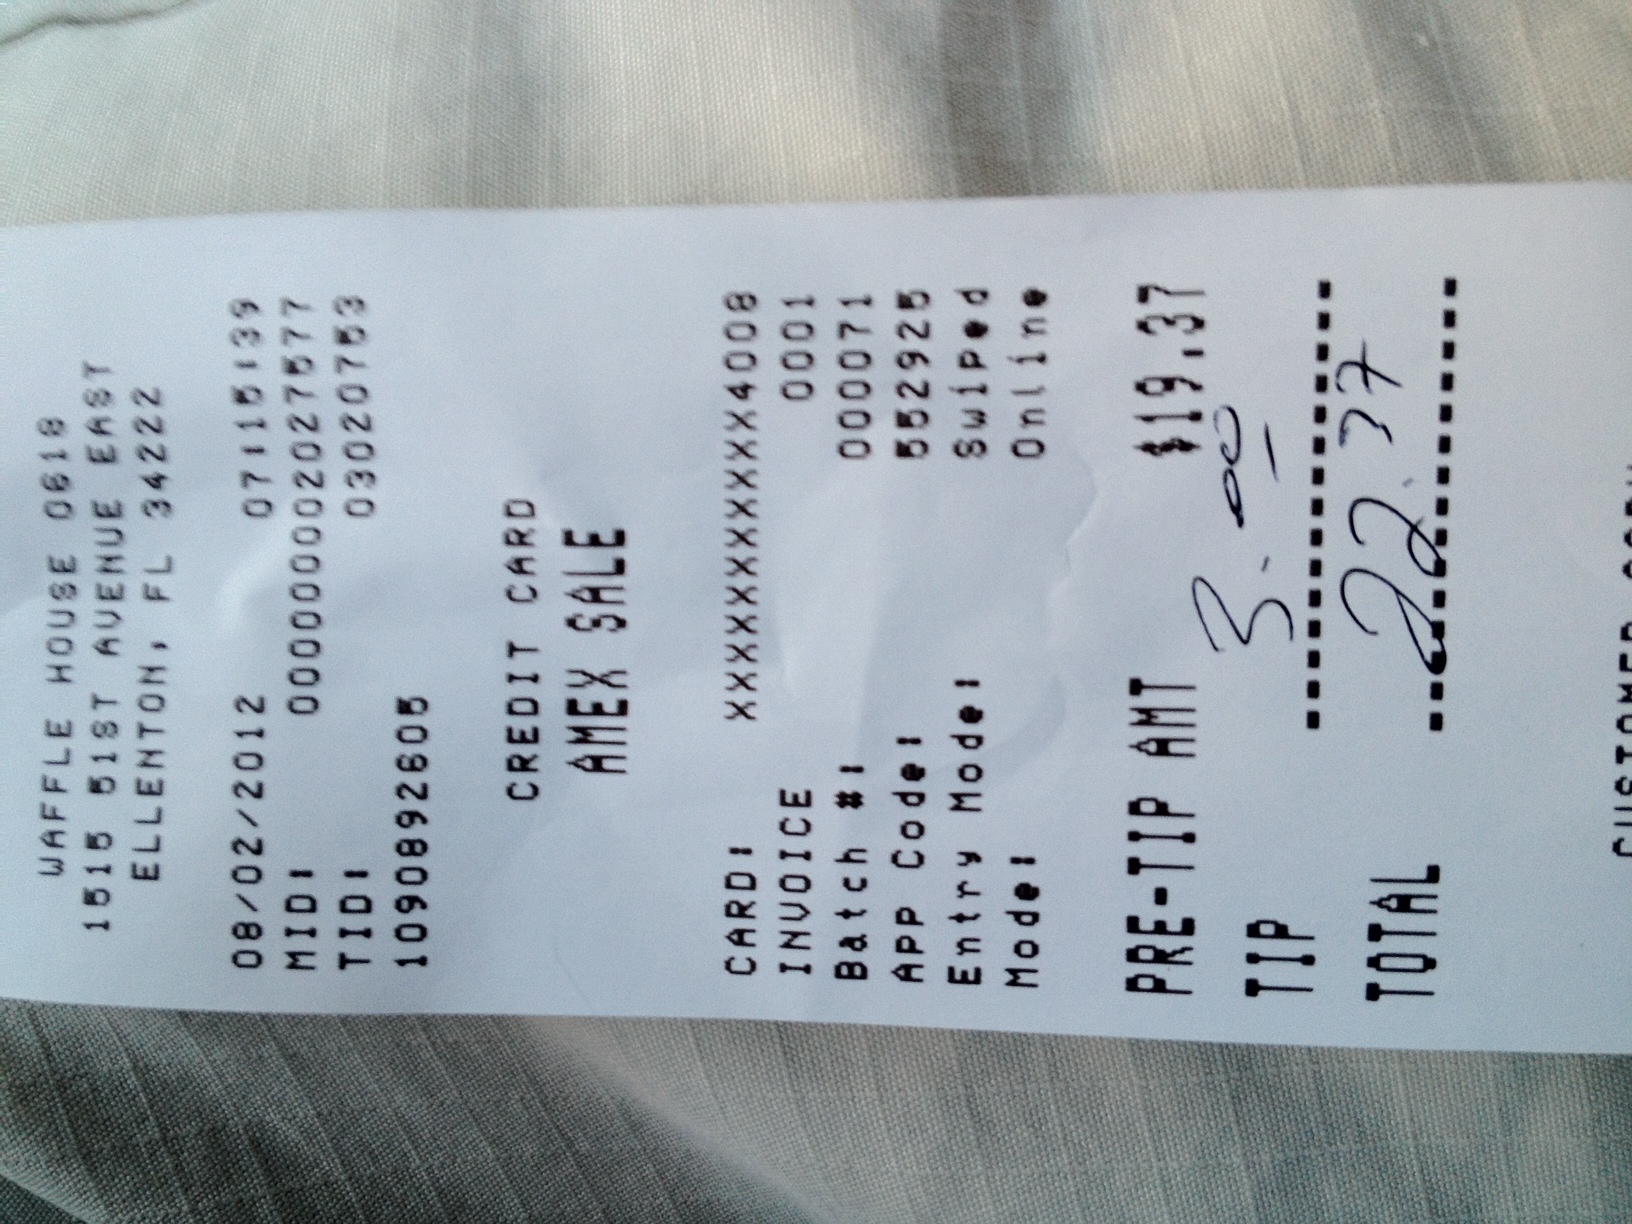 WAFFLE HOUSE 0618
1515 51ST AVENUE EAST
ELLENTON, FL 34222
08/02/2012 07:15:39
MID: 000000002027577
TID: 03020753
1090892605
CREDIT CARD
AMEX SALE
CARD: XXXXXXXXXXX4008
INVOICE 0001
Batch #: 000071
App Code: 552925
Entry Mode: Swiped
Mode: Online
PRE-TIP AMT $19.37
TIP 3.00
TOTAL 22.37
CUSTOMER COPY